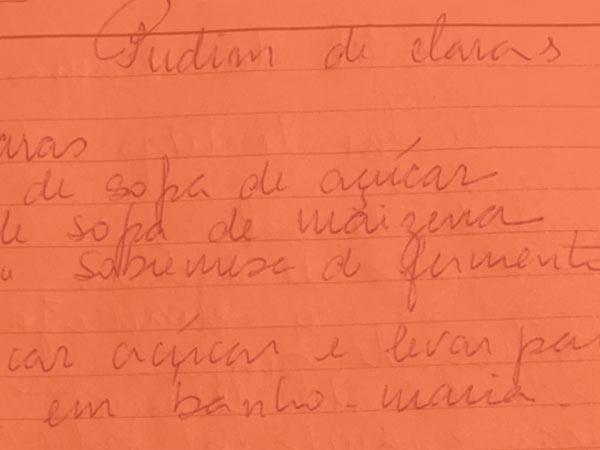 Pudim de claras
aras
de sopa de açúcar
de sopa de maizena
" sobremesa d fermento
car açúcar e levar par
em banho-maria